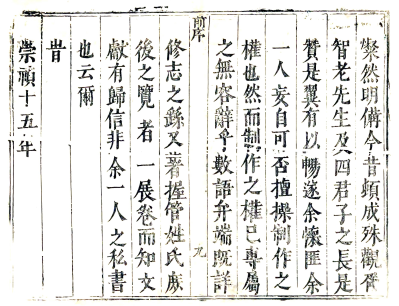 粲然明備今昔頓成殊觀
智老先生及四君子之長是
贊是翼有以暢遂余懷匪余
一人妄自可否擅操制作之
權也然而制作之權已專屬
之無容辭乎數語弁端既詳
前序 九
修志之繇又著握管姓氏庶
後之覽者一展卷而知文
獻有歸信非余一人之私書
也云爾
旹
崇禎十五年